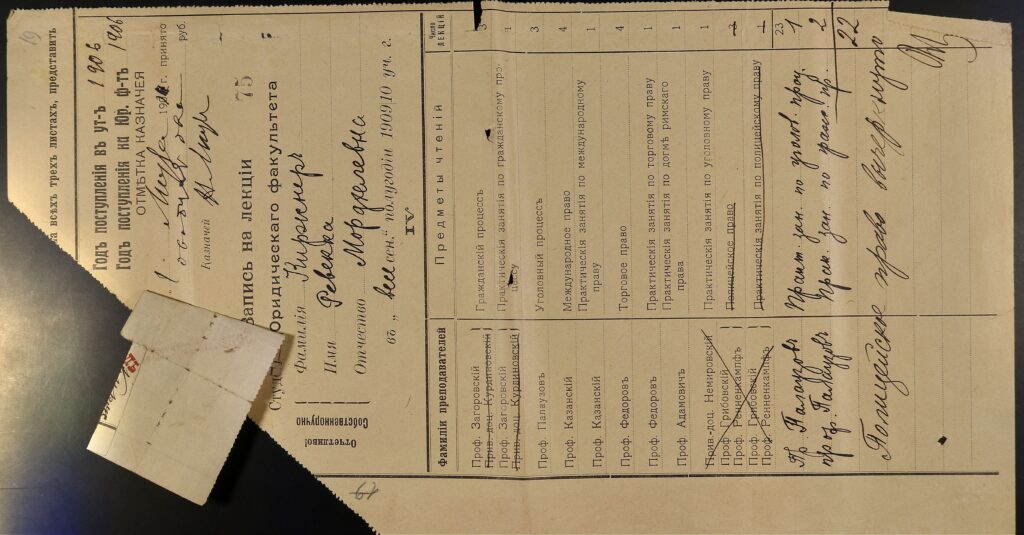 19
на всѣхъ трехъ листахъ, представить
Годъ поступленія въ ут-ъ 1906
Годъ поступленія на Юр. ф-тъ 1906
ОТМѢТКА КАЗНАЧЕЯ
г. принято
руб.
Казначей
Запись на лекціи 75
Юридическаго факультета
Отчетливо!
Собственноручно
Фамилія Киржнеръ
Имя Ревекка
Отчество Мордхелевна
въ „ весен.“ полугодіи 1909/10 уч. г.
IV
Фамиліи преподавателей Предметы чтеній Число лекцій
Проф. Загоровскій Гражданскій процессъ 3
Прив.-доц. Курдиновскій
Проф. Загоровскій Практическія занятія по гражданскому про- 1
Прив.-доц. Курдиновскій цессу
Проф. Палаузовъ Уголовный процессъ 3
Проф. Казанскій Международное право 4
Проф. Казанскій Практическія занятія по международному 1
праву
Проф. Федоровъ Торговое право 4
Проф. Федоровъ Практическія занятія по торговому праву 1
Проф Адамовичъ Практическія занятія по догмѣ римскаго 1
права
Прив.-доц. Немировскій Практическія занятія по уголовному праву 1
Проф Грибовскій Полицейское право 3
Проф. Ренненкампфъ
Проф. Грибовскій Практическія занятія по полицейскому праву 1
Проф. Ренненкампфъ
23
Пр. Палаузовъ Практ. зан. по уголов. проц. 1
проф. Палаузовъ Прак. зан. по 2
22
Полицейское право вычеркнуто
67